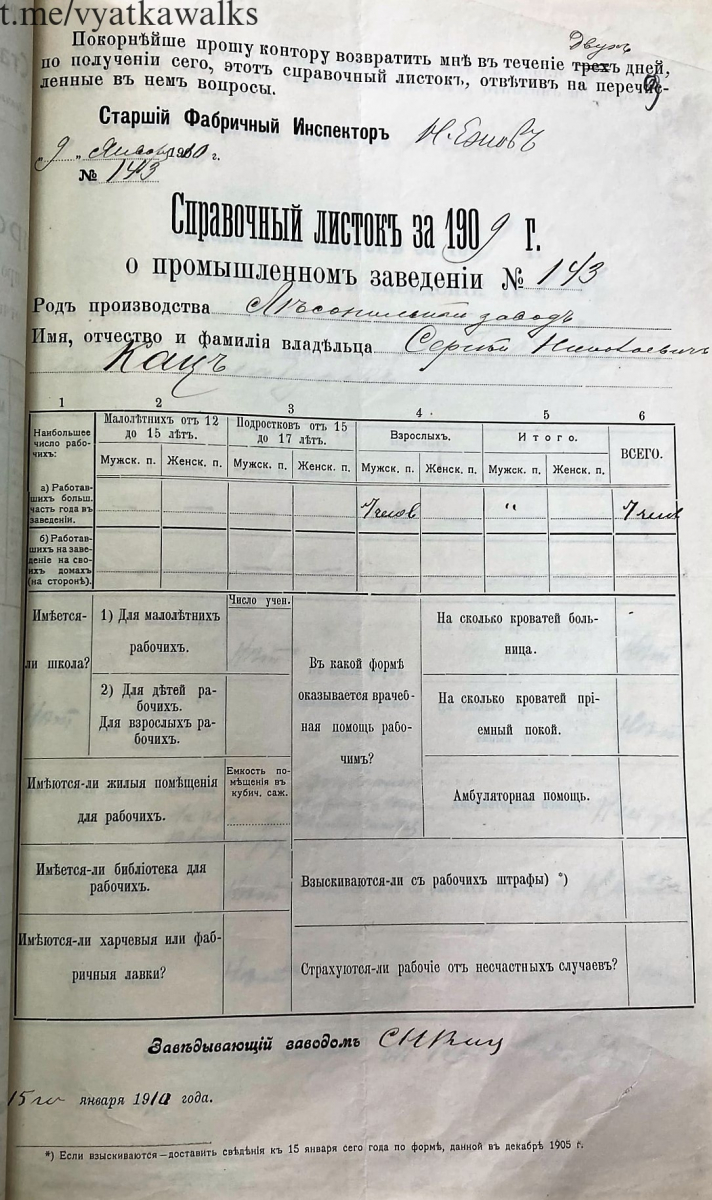 t.me/vyatkawalks
Двухъ
Покорнѣйше прошу контору возвратить мнѣ въ теченіе трехъ дней,
по полученіи сего, этотъ справочный листокъ, отвѣтивъ на перечис-
ленные въ немъ вопросы.
Старшій Фабричный Инспекторъ
„9" января 1910 г.
№ 143
Справочный листокъ за 1909 г.
о промышленномъ заведеніи № 143
Родъ производства Лѣсопильный заводъ
Имя, отчество и фамилія владѣльца Сергѣй Николаевичъ
Кацъ
1 2 3 4 5 6
Наибольшее число рабо-чихъ:
Малолѣтнихъ отъ 12 до 15 лѣтъ.
Подростковъ отъ 15 до 17 лѣтъ.
Взрослыхъ.
Итого.
ВСЕГО.
Мужск. п. Женск. п. Мужск. п. Женск. п. Мужск. п. Женск. п. Мужск. п. Женск. п.
а) Работав-
шихъ больш.
часть года въ
заведеніи.
7 челов "  7 челов
б) Работав-
шихъ на заве-
деніе на сво-
ихъ домахъ
(на сторонѣ).
Имѣется-
ли школа?
1) Для малолѣтнихъ
рабочихъ.
2) Для дѣтей ра-
бочихъ.
Для взрослыхъ ра-
бочихъ.
Число учен.
Въ какой формѣ
оказывается врачеб-
ная помощь рабо-
чимъ?
На сколько кроватей боль-
ница.
На сколько кроватей прі-
емный покой.
Амбуляторная помощь.
Имѣются-ли жилыя помѣщенія
для рабочихъ.
Емкость по-
мѣщенія въ
кубич. саж.
Имѣется-ли библіотека для
рабочихъ.
Взыскиваются-ли съ рабочихъ штрафы) *)
Имѣются-ли харчевыя или фаб-
ричныя лавки?
Страхуются-ли рабочіе отъ несчастныхъ случаевъ?
Завѣдывающій заводомъ С Н Кац
15го января 1910 года.
*) Если взыскиваются—доставить свѣдѣнія къ 15 января сего года по формѣ, данной въ декабрѣ 1905 г.